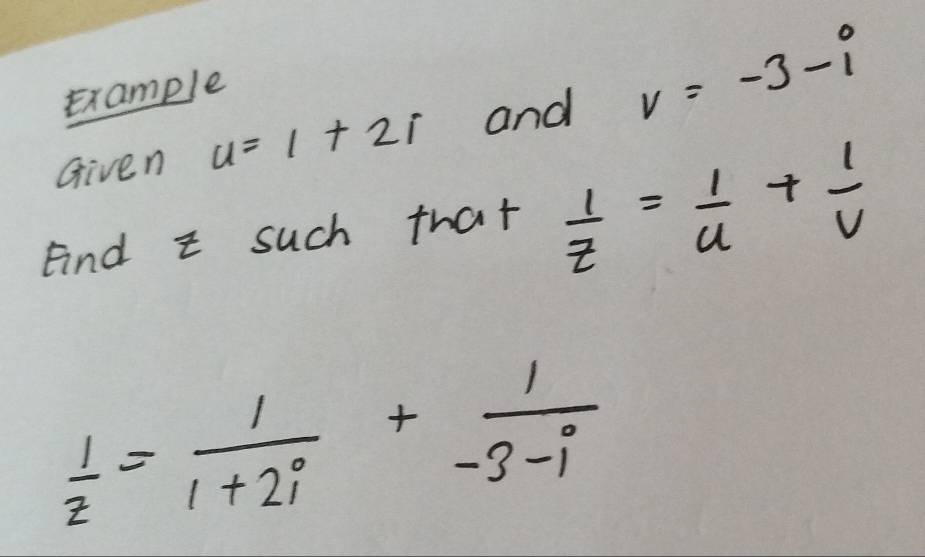 Example
Given u = 1 + 2i and v = -3 - i
Find z such that 1/z = 1/u + 1/v
1/z = 1/(1 + 2i) + 1/(-3 - i)